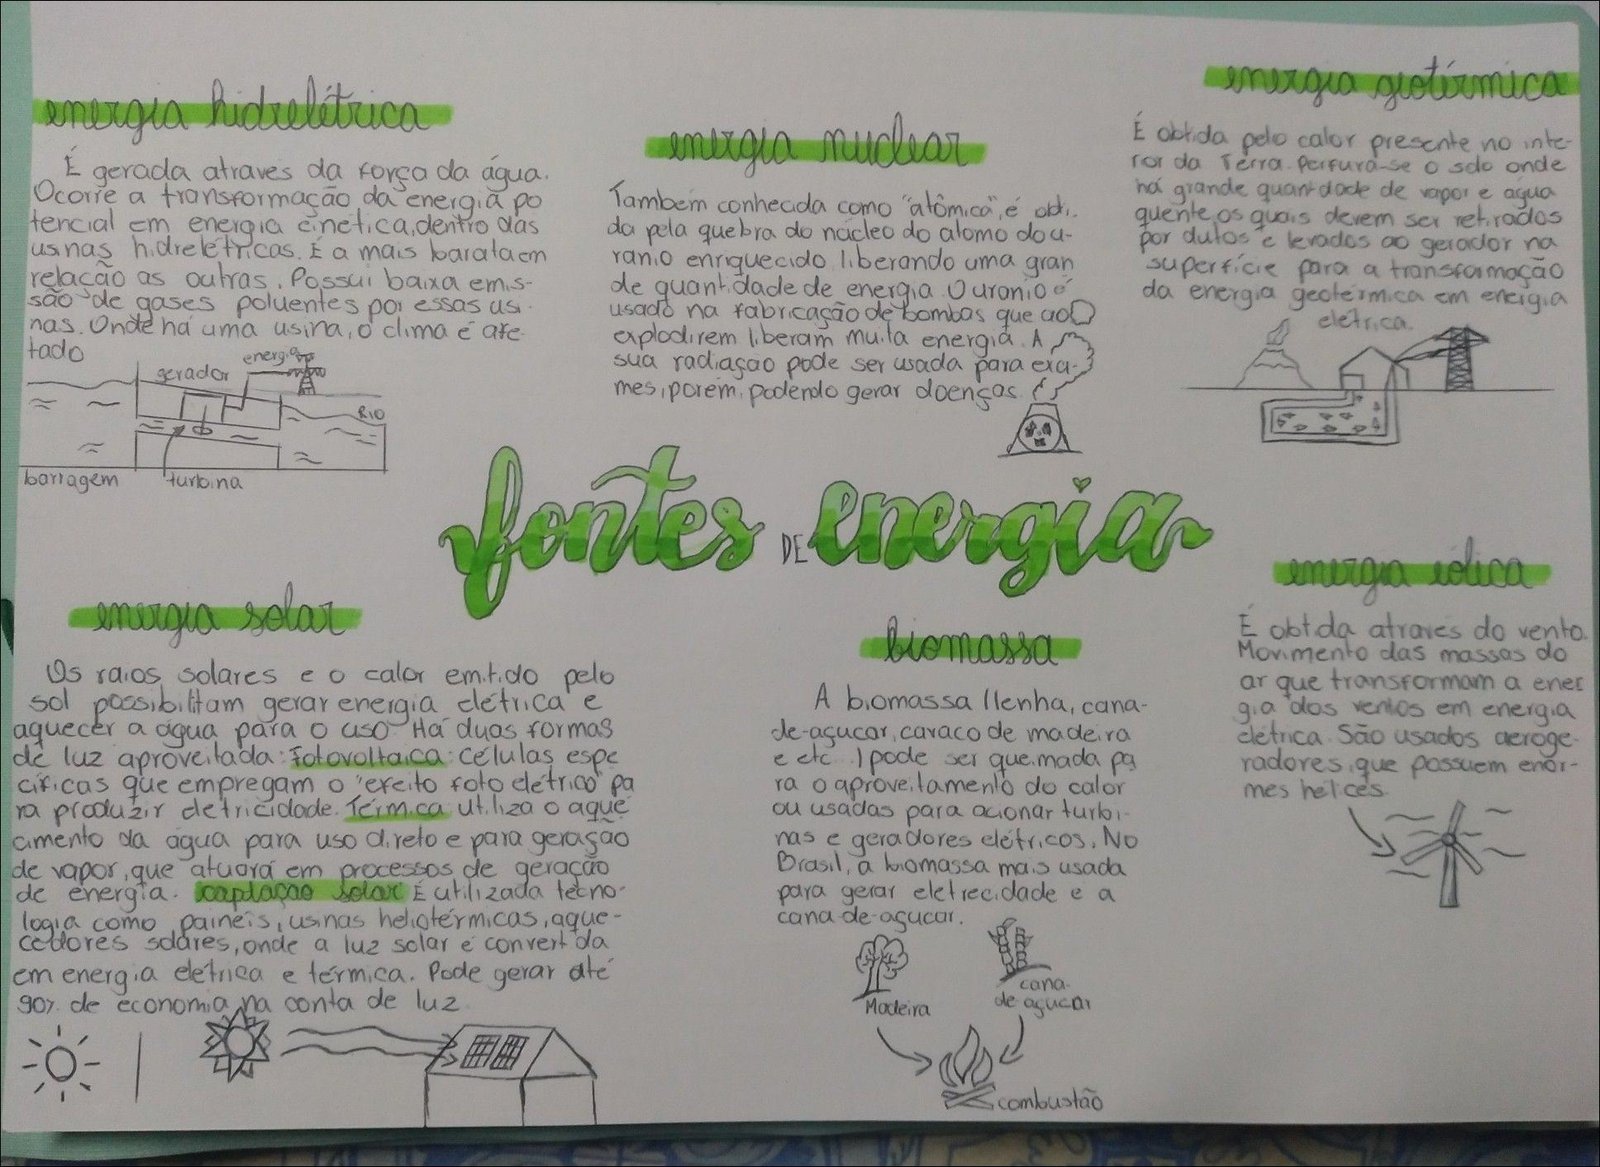 energia hidrelétrica
É gerada através da força da água.
Ocorre a transformação da energia po
tencial em energia cinética, dentro das
usinas hidrelétricas. É a mais barata em
relação as outras. Possui baixa emis-
são de gases poluentes por essas usi-
nas. Onde há uma usina, o clima é afe-
tado
energia
gerador
RIO
barragem
turbina
energia nuclear
Também conhecida como "atômica", é obti-
da pela quebra do núcleo do átomo do u-
ranio enriquecido, liberando uma gran
de quantidade de energia. O uranio é
usado na fabricação de bombas que ao
explodirem liberam muita energia. A
sua radiação pode ser usada para exa-
mes, porem, podendo gerar doenças.
energia geotérmica
É obtida pelo calor presente no inte-
rior da Terra. Perfura-se o solo onde
há grande quantidade de vapor e agua
quente, os quais devem ser retirados
por dutos e levados ao gerador na
superfície para a transformação
da energia geotérmica em energia
elétrica.
fontes DE energia
energia solar
Os raios solares e o calor emitido pelo
sol possibilitam gerar energia elétrica e
aquecer a água para o uso. Há duas formas
de luz aproveitada: Fotovoltaica: células espe
cíficas que empregam o "efeito foto elétrico" pa
ra produzir eletricidade. Térmica: utiliza o aque
cimento da água para uso direto e para geração
de vapor, que atuará em processos de geração
de energia. captação solar É utilizada tecno-
logia como paineis, usinas heliotérmicas, aque-
cedores solares, onde a luz solar é convertida
em energia elétrica e térmica. Pode gerar até
90% de economia na conta de luz.
biomassa
A biomassa (lenha, cana-
de-açucar, caraço de madeira
e etc...) pode ser queimada pa
ra o aproveitamento do calor
ou usadas para acionar turbi-
nas e geradores elétricos. No
Brasil, a biomassa mais usada
para gerar eletrecidade e a
cana-de-açucar.
Madeira
cana-
de açucar
combustão
energia eólica
É obtida através do vento.
Movimento das massas do
ar que transformam a ener
gia dos ventos em energia
elétrica. São usados aeroge-
radores, que possuem enor-
mes helices.